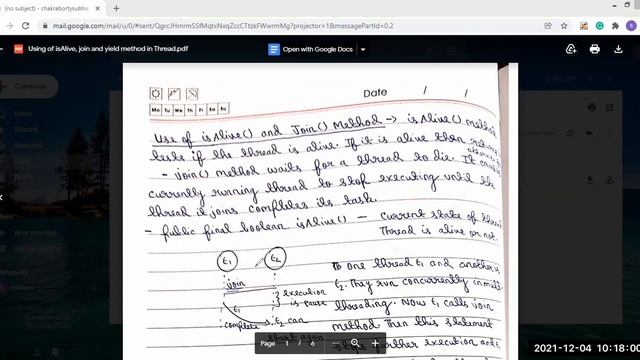 (no subject) - chakrabortysubha
mail.google.com/mail/u/0/#sent/QgrcJHrnrmSSfMqtxNxqZccCTtzkFWwrmMg?projector=1&messagePartId=0.2
Using of isAlive, join and yield method in Thread.pdf
Open with Google Docs
Compose
Inbox
Starred
Sent
New meeting
Date / /
Mo Tu We Th Fr Sa Su
Use of isAlive() and Join() Method → isAlive() Method
tests if the thread is alive. If it is alive then returns
- join() method waits for a thread to die. It
currently running thread to stop executing until the
thread it joins completes its task.
- public final boolean isAlive() - Current state of
Thread is alive or not.
t1 t2
join
execution
is pause
t1
complete t2 can
start again
To one thread t1 and another is
t2. They run concurrently in
threading. Now t1 calls join
method Then this statement
stops further execution and
Page 1 / 6
2021-12-04 10:18:00